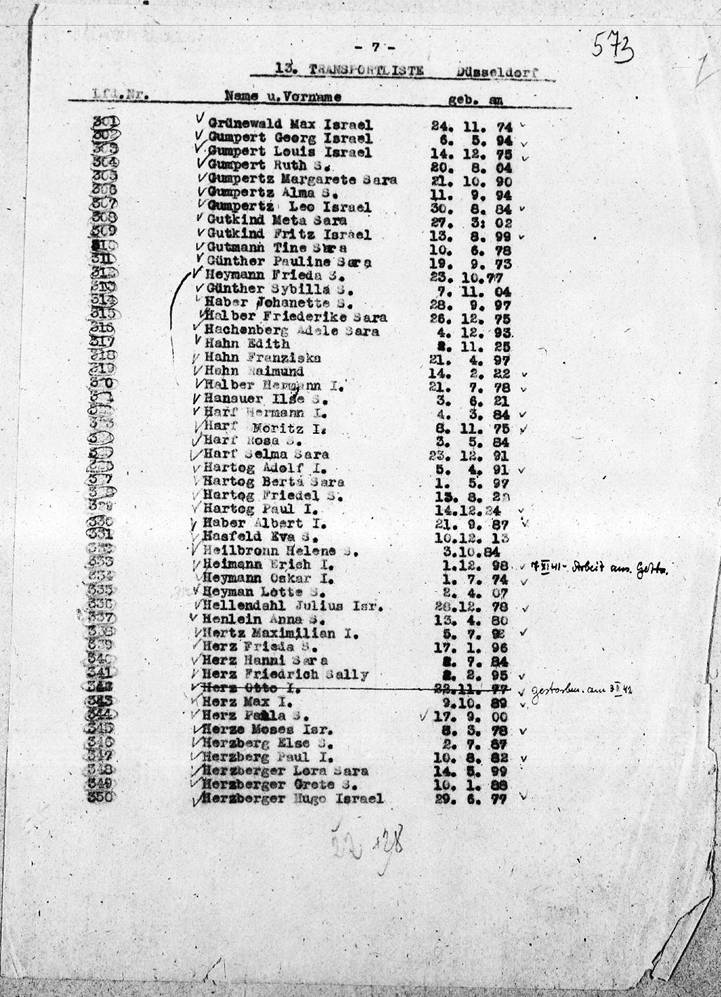 - 7 -
573
13. TRANSPORTLISTE Düsseldorf
Lfd.Nr. Name u.Vorname geb. am
301 Grünewald Max Israel 24. 11. 74
302 Gumpert Georg Israel 6. 5. 94
303 Gumpert Louis Israel 14. 12. 75
304 Gumpert Ruth S. 20. 8. 04
305 Gumpertz Margarete Sara 21. 10. 90
306 Gumpertz Alma S. 11. 9. 94
307 Gumpertz Leo Israel 30. 8. 84
308 Gutkind Meta Sara 27. 3. 02
309 Gutkind Fritz Israel 13. 8. 99
310 Gutmann Tine Sara 10. 6. 78
311 Günther Pauline Sara 19. 9. 73
312 Heymann Frieda S. 23. 10.77
313 Günther Sybilla S. 7. 11. 04
314 Haber Johanette S. 28. 9. 97
315 Halber Friederike Sara 26. 12. 75
316 Hachenberg Adele Sara 4. 12. 93
317 Hahn Edith 11. 25
318 Hahn Franziska 21. 4. 97
319 Hohn Raimund 14. 2. 22
320 Halber Hermann I. 21. 7. 78
Hanauer Ilse S. 3. 6. 21
Harf Hermann I. 4. 3. 84
Harf Moritz I. 8. 11. 75
Harf Rosa S. 3. 5. 84
Harf Selma Sara 23. 12. 91
Hartog Adolf I. 5. 4. 91
327 Hartog Berta Sara 1. 5. 97
Hartog Friedel S. 13. 8.
329 Hartog Paul I. 14.12.24
330 Haber Albert I. 21. 9. 87
331 Hasfeld Eva S. 10.12. 13
332 Heilbronn Helene S. 3.10.84
333 Heimann Erich I. 1.12. 98 7 XI 41 - Arbeit aus. Getto.
334 Heymann Oskar I. 1. 7. 74
335 Heyman Lotte S. 2. 4. 07
336 Hellendahl Julius Isr. 28.12. 78
337 Henlein Anna S. 13. 4. 80
338 Hertz Maximilian I. 5. 7.
339 Herz Frieda S. 17. 1. 96
340 Herz Hanni Sara 7. 84
341 Herz Friedrich Sally 2. 95
342 Herz Otto I. 22.11. 77 gestorben. am 3 I 42
343 Herz Max I. 9.10. 89
344 Herz Paula S. 17. 9. 00
345 Herze Moses Isr. 8. 3. 78
346 Herzberg Else S. 2. 7. 87
347 Herzberg Paul I. 10. 8. 82
348 Herzberger Lora Sara 14. 5. 99
349 Herzberger Grete S. 10. 1. 88
350 Herzberger Hugo Israel 29. 6. 77
22 28